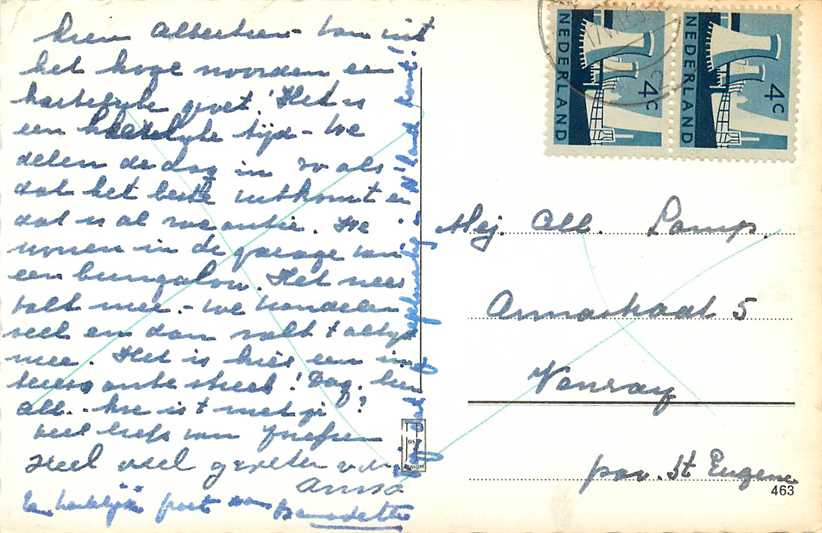 Lieve Albertien - Van uit
het hoge noorden een
hartelijke groet! Het is
een heerlijke tijd - We
delen de dag in zo als
dat het beste uitkomt en
dat is al vacantie. We
wonen in de garage van
een bungalow. Het weer
valt mee. - We wandelen
veel en dan valt 't altijd
mee. Het is hier een in
teressante streek! Dag. Lieve
Alb. - hoe is 't met je?
veel liefs van
Heel veel groeten v.
Anna
Een hartelijke groet van
Bernadette
NEDERLAND 4c
NEDERLAND 4c
Mej. Alb. Camp.
Annastraat 5
Venray
pav. St Eugene
463